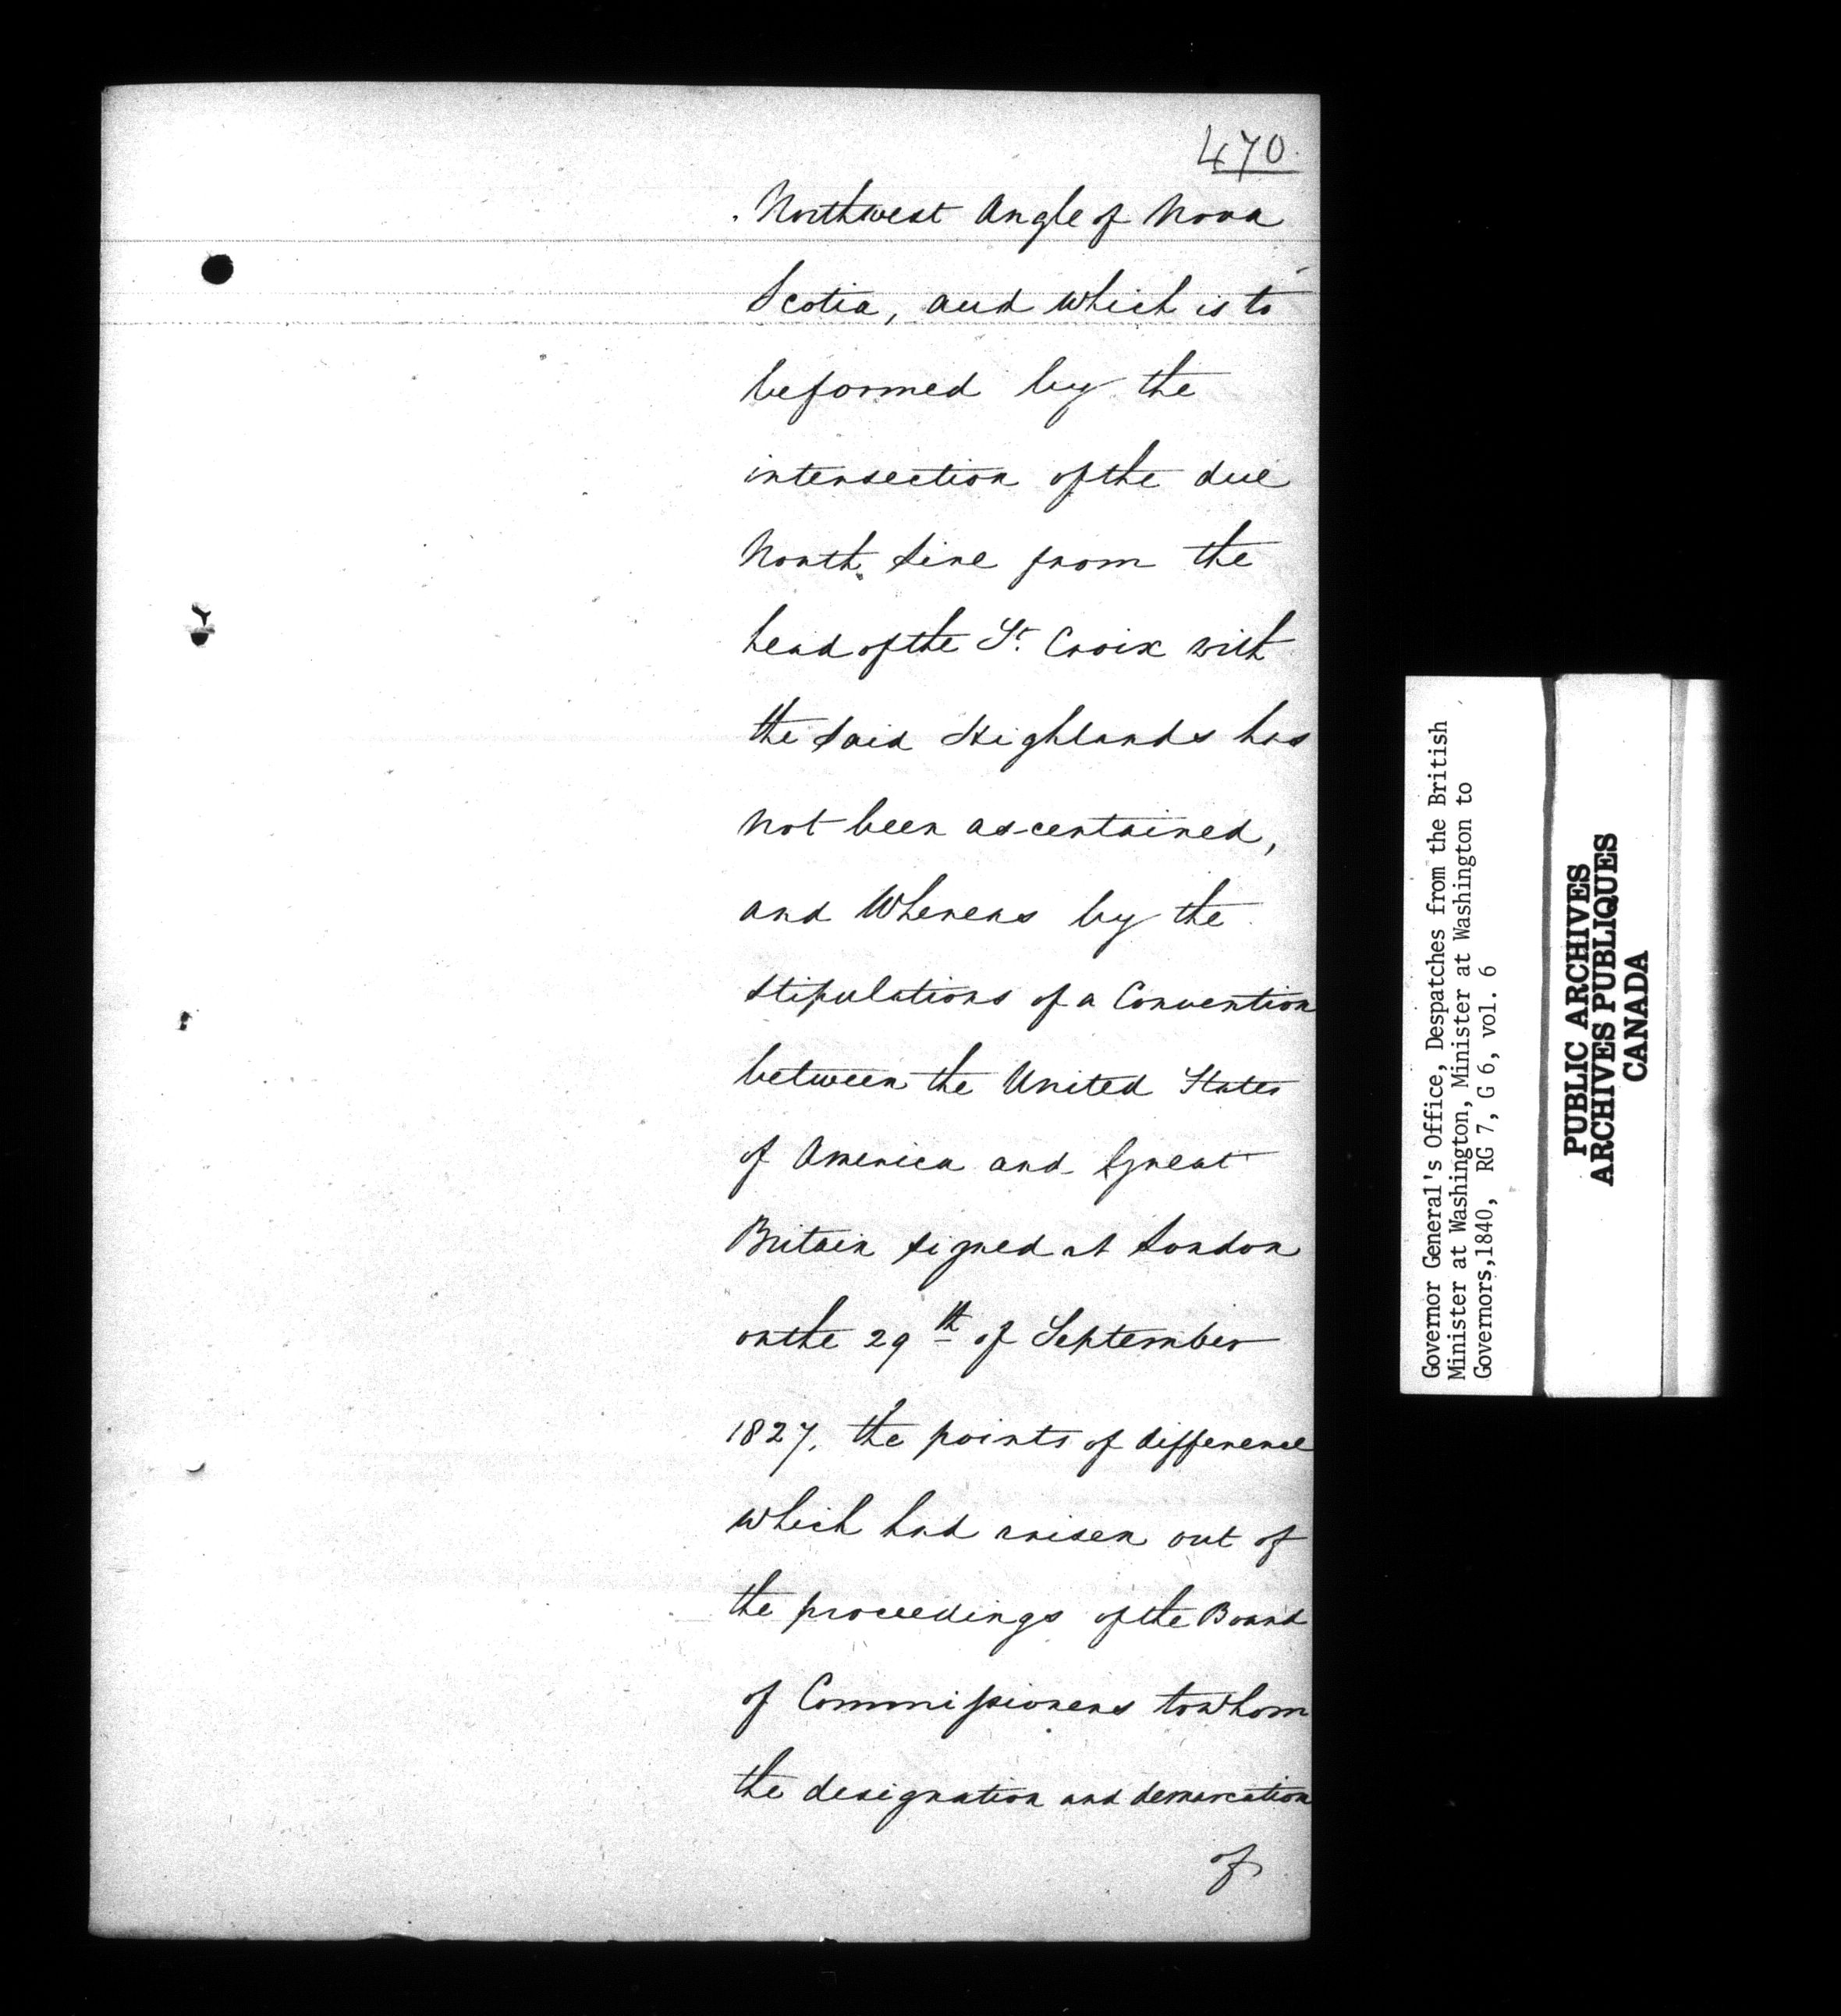 470.
Northwest Angle of Nova
Scotia, and which is to
be formed by the
intersection of the due
North line from the
head of the St. Croix with
the said Highlands has
not been ascertained,
and Whereas by the
stipulations of a Convention
between the United States
of America and Great
Britain signed at London
on the 29th of September
1827, the points of difference
which had arisen out of
the proceedings of the Board
of Commissioners to whom
the designation and demarcation
of
Governor General's Office, Despatches from the British
Minister at Washington, Minister at Washington to
Governors,1840, RG 7, G 6, vol. 6
PUBLIC ARCHIVES
ARCHIVES PUBLIQUES
CANADA